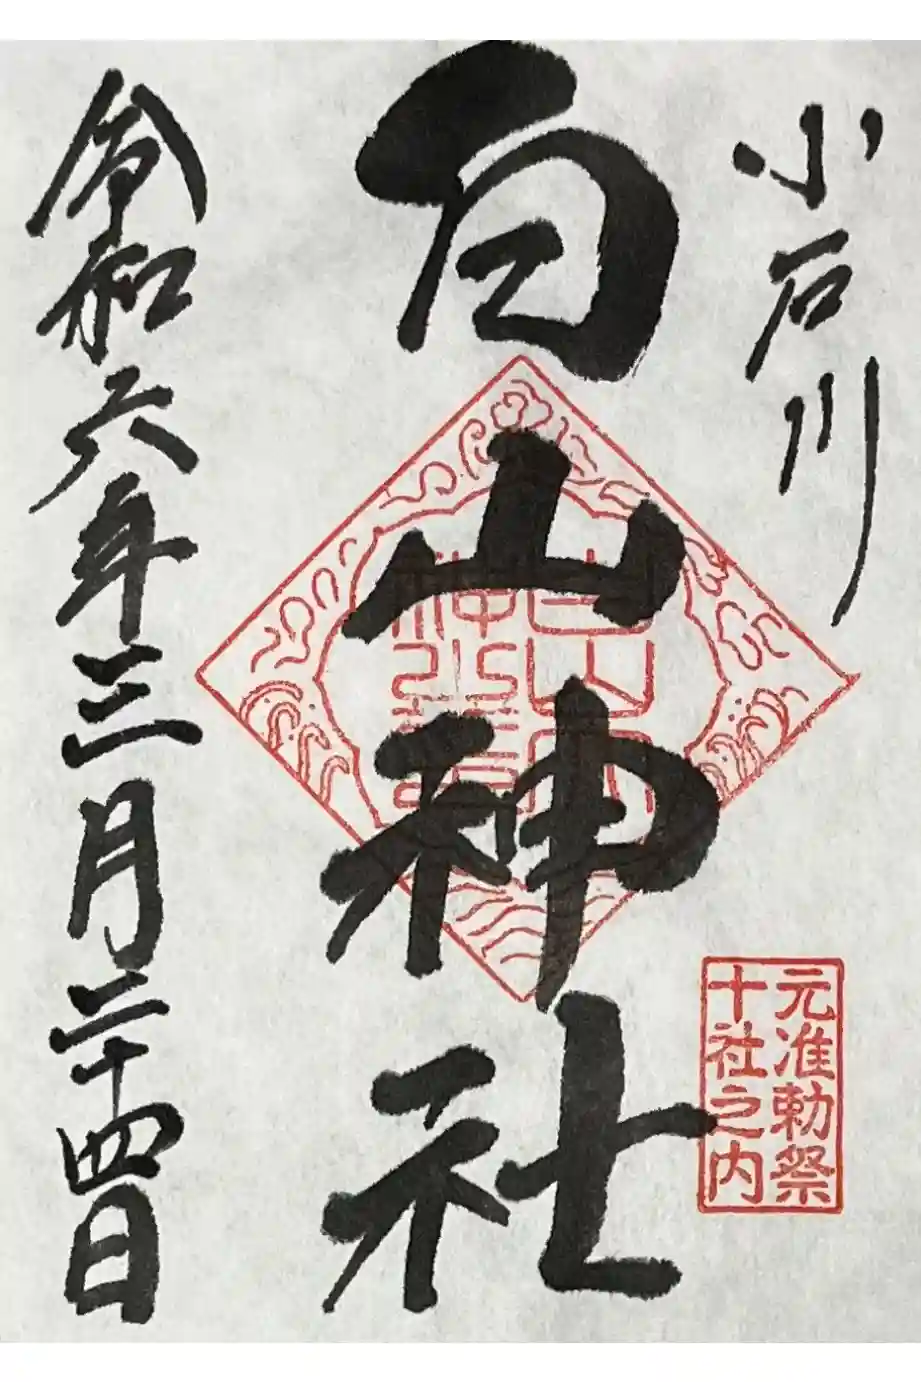 小石川
元准勅祭
十社之内
白山神社
令和六年三月二十四日